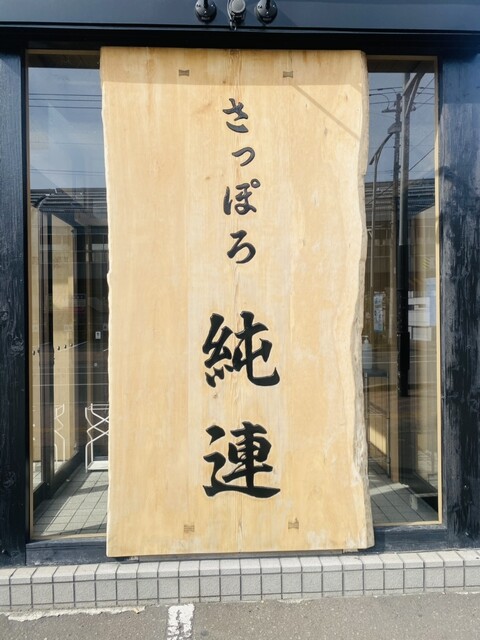 さっぽろ 純連